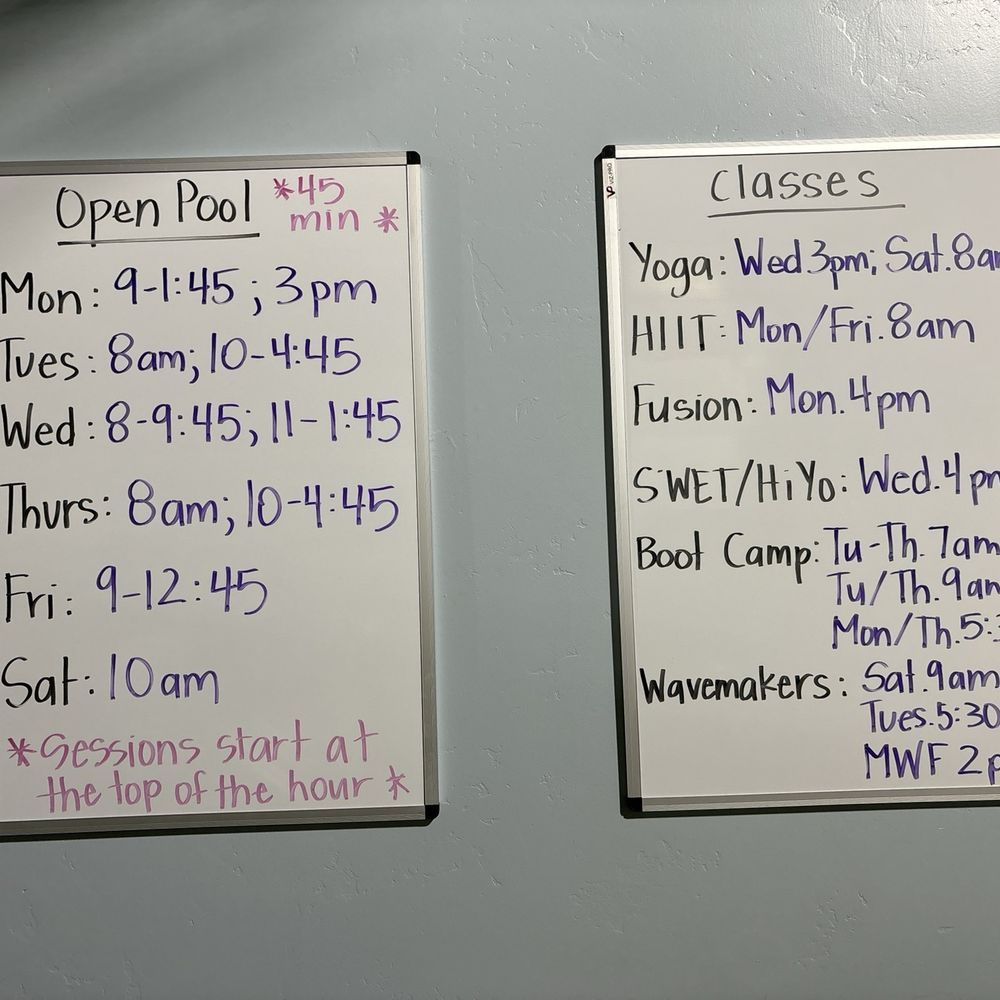 Open Pool *45
min *
Mon: 9-1:45; 3pm
Tues: 8am; 10-4:45
Wed: 8-9:45; 11-1:45
Thurs: 8am; 10-4:45
Fri: 9-12:45
Sat: 10am
*Sessions start at
the top of the hour *
VIZ-PRO
Classes
Yoga: Wed.3pm; Sat.8am
HIIT: Mon/Fri.8am
Fusion: Mon.4pm
SWET/HiYo: Wed.4pm
Boot Camp: Tu-Th.7am
Tu/Th.9am
Mon/Th.5:3
Wavemakers: Sat.9am
Tues.5:30
MWF 2p